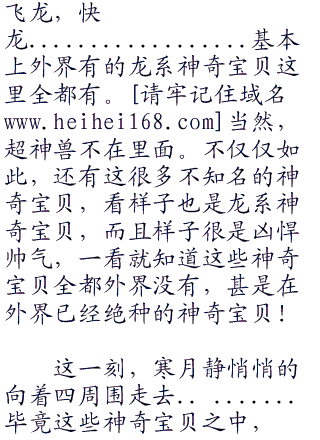 飞龙，快
龙...................基本
上外界有的龙系神奇宝贝这
里全都有。[请牢记住域名
www.heihei168.com]当然，
超神兽不在里面。不仅仅如
此，还有这很多不知名的神
奇宝贝，看样子也是龙系神
奇宝贝，而且样子很是凶悍
帅气，一看就知道这些神奇
宝贝全都外界没有，甚是在
外界已经绝种的神奇宝贝！
这一刻，寒月静悄悄的
向着四周围走去.. .......
毕竟这些神奇宝贝之中，